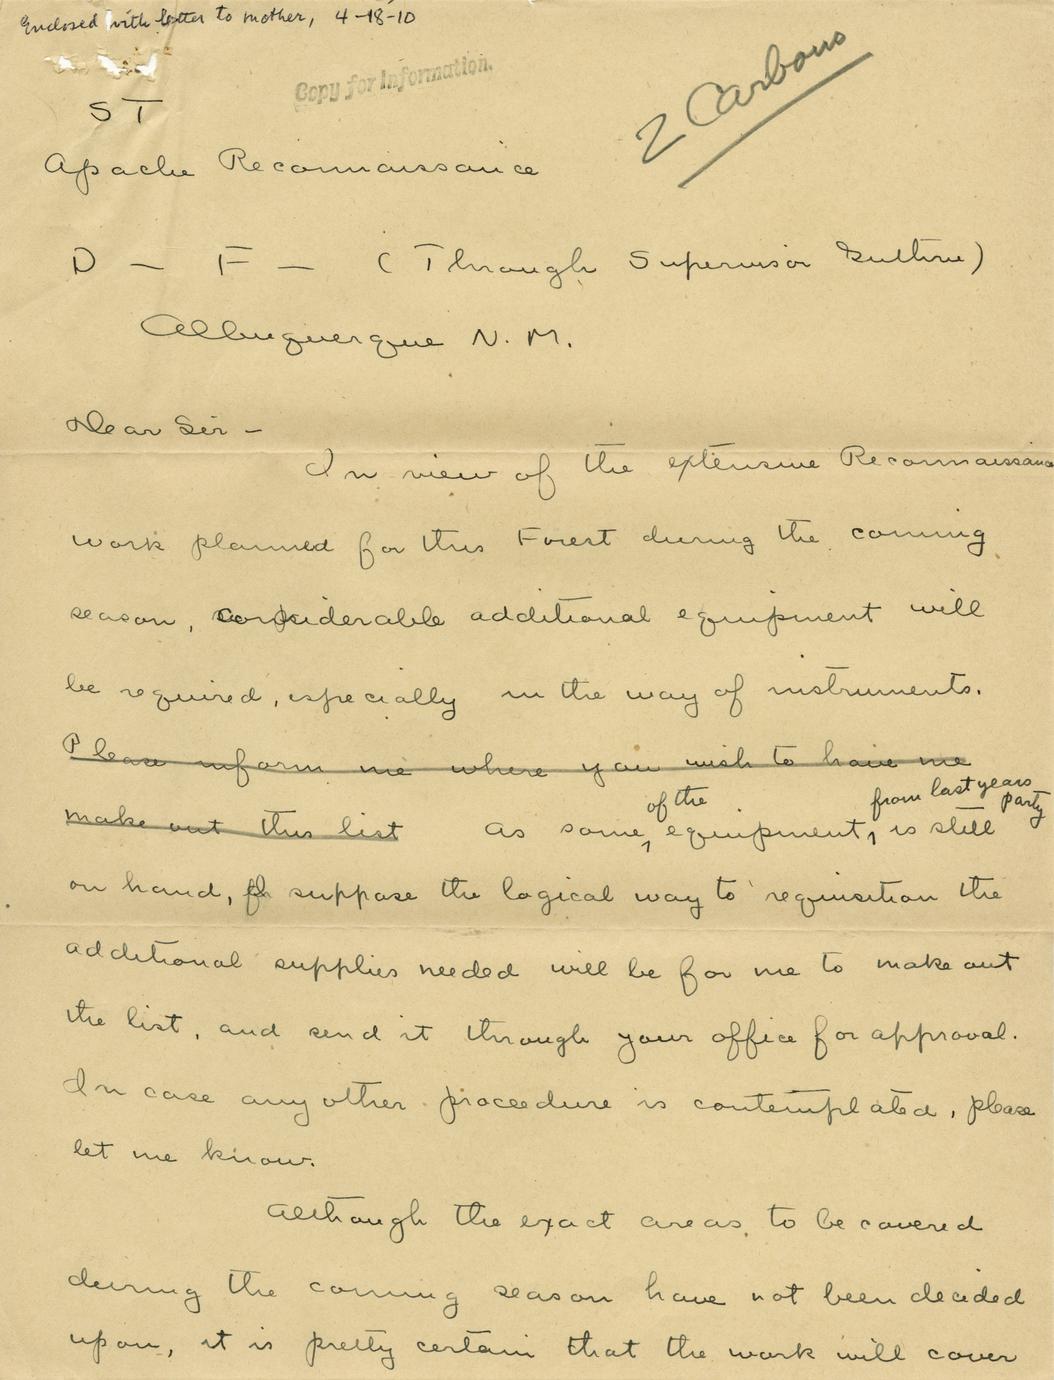 Enclosed with letter to mother, 4-18-10
Copy for Information.
2 Carbons
S T
Apache Reconnaissance
D — F — (Through Supervisor Guthrie)
Albuquerque N. M.
Dear Sir —
In view of the extensive Reconnaissance
work planned for this Forest during the coming
season, considerable additional equipment will
be required, especially in the way of instruments.
Please inform me where you wish to have me
of the from last years party
make out this list As some equipment, is still
on hand, I suppose the logical way to requisition the
additional supplies needed will be for me to make out
the list, and send it through your office for approval.
In case any other proceedure is contemplated, please
let me know.
Although the exact areas to be covered
during the coming season have not been decided
upon, it is pretty certain that the work will cover